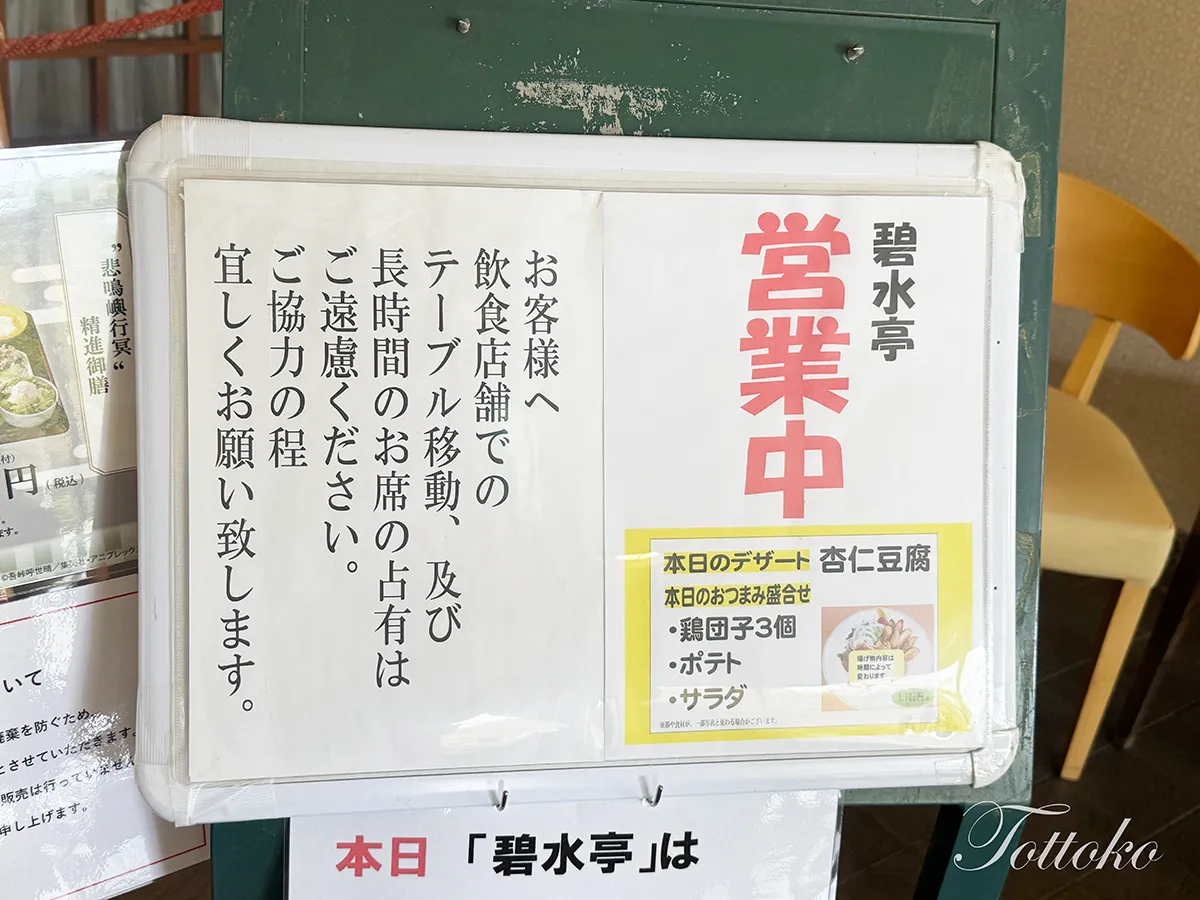 碧水亭
営業中
本日のデザート 杏仁豆腐
本日のおつまみ盛合せ
・鶏団子3個
・ポテト
・サラダ
揚げ物内容は
時期によって
変わります
※器や食材が、一部写真と変わる場合がございます。
お客様へ
飲食店舗での
テーブル移動、及び
長時間のお席の占有は
ご遠慮ください。
ご協力の程
宜しくお願い致します。
本日「碧水亭」は
”悲鳴嶼行冥“
精進御膳
付)
円(税込)
ます。
©吾峠呼世晴／集英社・アニプレックス
いて
廃棄を防ぐため、
とさせていただきます。
販売は行っていません
申し上げます。
Tottoko